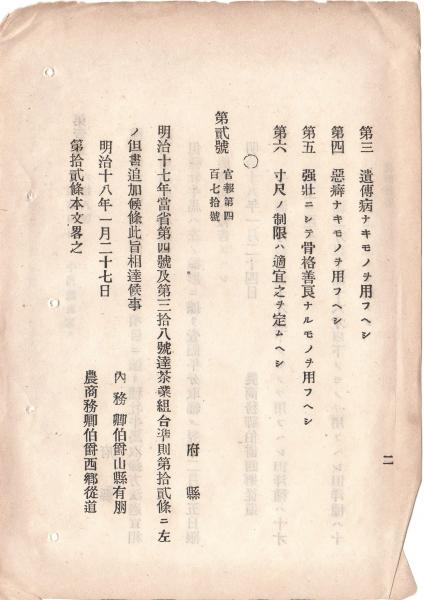 二
第三　遺傳病ナキモノヲ用フヘシ
第四　惡癖ナキモノヲ用フヘシ
第五　强壯ニシテ骨格善良ナルモノヲ用フヘシ
第六　寸尺ノ制限ハ適宜之ヲ定ムヘシ
○
第貳號　官報第四百七拾號
府縣
明治十七年當省第四號及第三拾八號達茶業組合準則第拾貳條ニ左
ノ但書追加候條此旨相達候事
明治十八年一月二十七日
內務卿伯爵山縣有朋
農商務卿伯爵西鄕從道
第拾貳條本文畧之